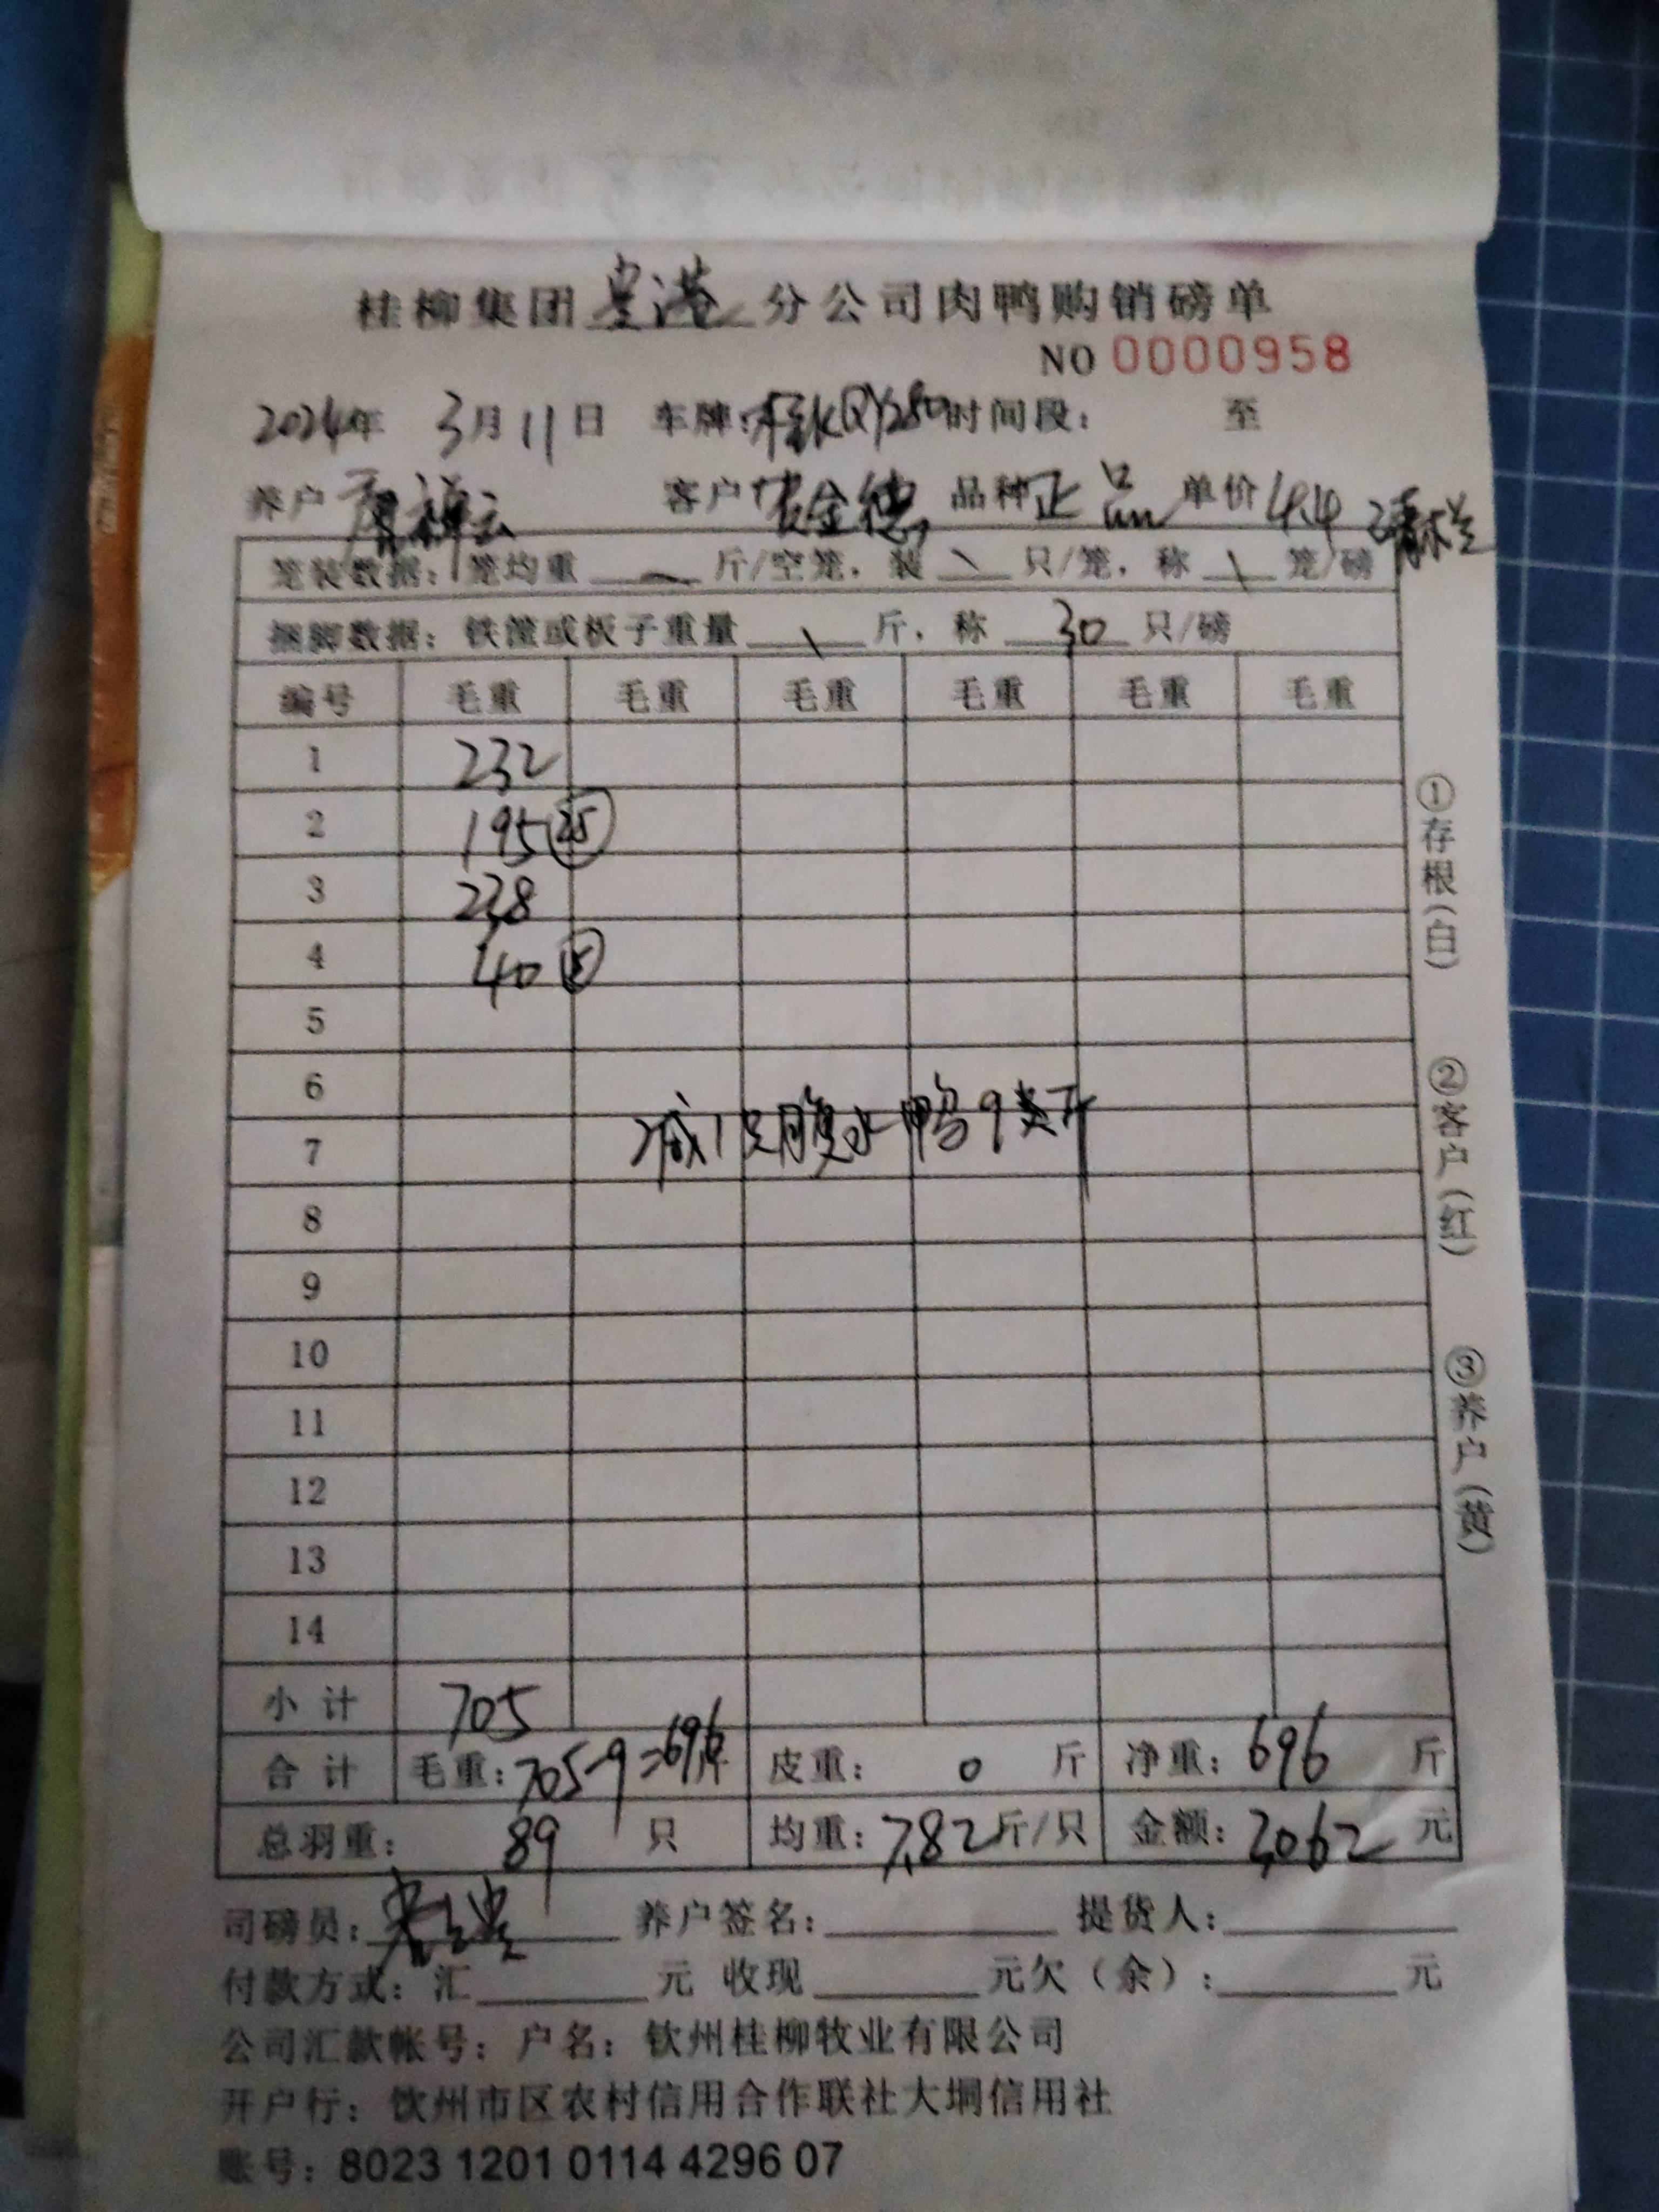 桂柳集团分公司肉鸭购销磅单
NO 0000958
2024年 3月11日 车牌: 时间段: 至
养户 客户 金德 品种 正品 单价 4.4
笼装数据: 笼均重 斤/空笼, 装 \ 只/笼, 称 \ 笼/磅
捆脚数据: 铁筐或板子重量 \ 斤, 称 30 只/磅
编号 毛重 毛重 毛重 毛重 毛重 毛重
1 232
2 195 25
3 238
4 40 5
5
6
减1只腹水鸭9斤
7
8
9
10
11
12
13
14
小计 705
合计 毛重: 705-9=696斤 皮重: 0 斤 净重: 696 斤
总羽重: 89 只 均重: 7.82斤/只 金额: 3062 元
司磅员: 养户签名: 提货人:
付款方式: 汇 元 收现 元欠(余): 元
公司汇款帐号: 户名: 钦州桂柳牧业有限公司
开户行: 钦州市区农村信用合作联社大垌信用社
账号: 8023 1201 0114 4296 07
①存根(白) ②客户(红) ③养户(黄)